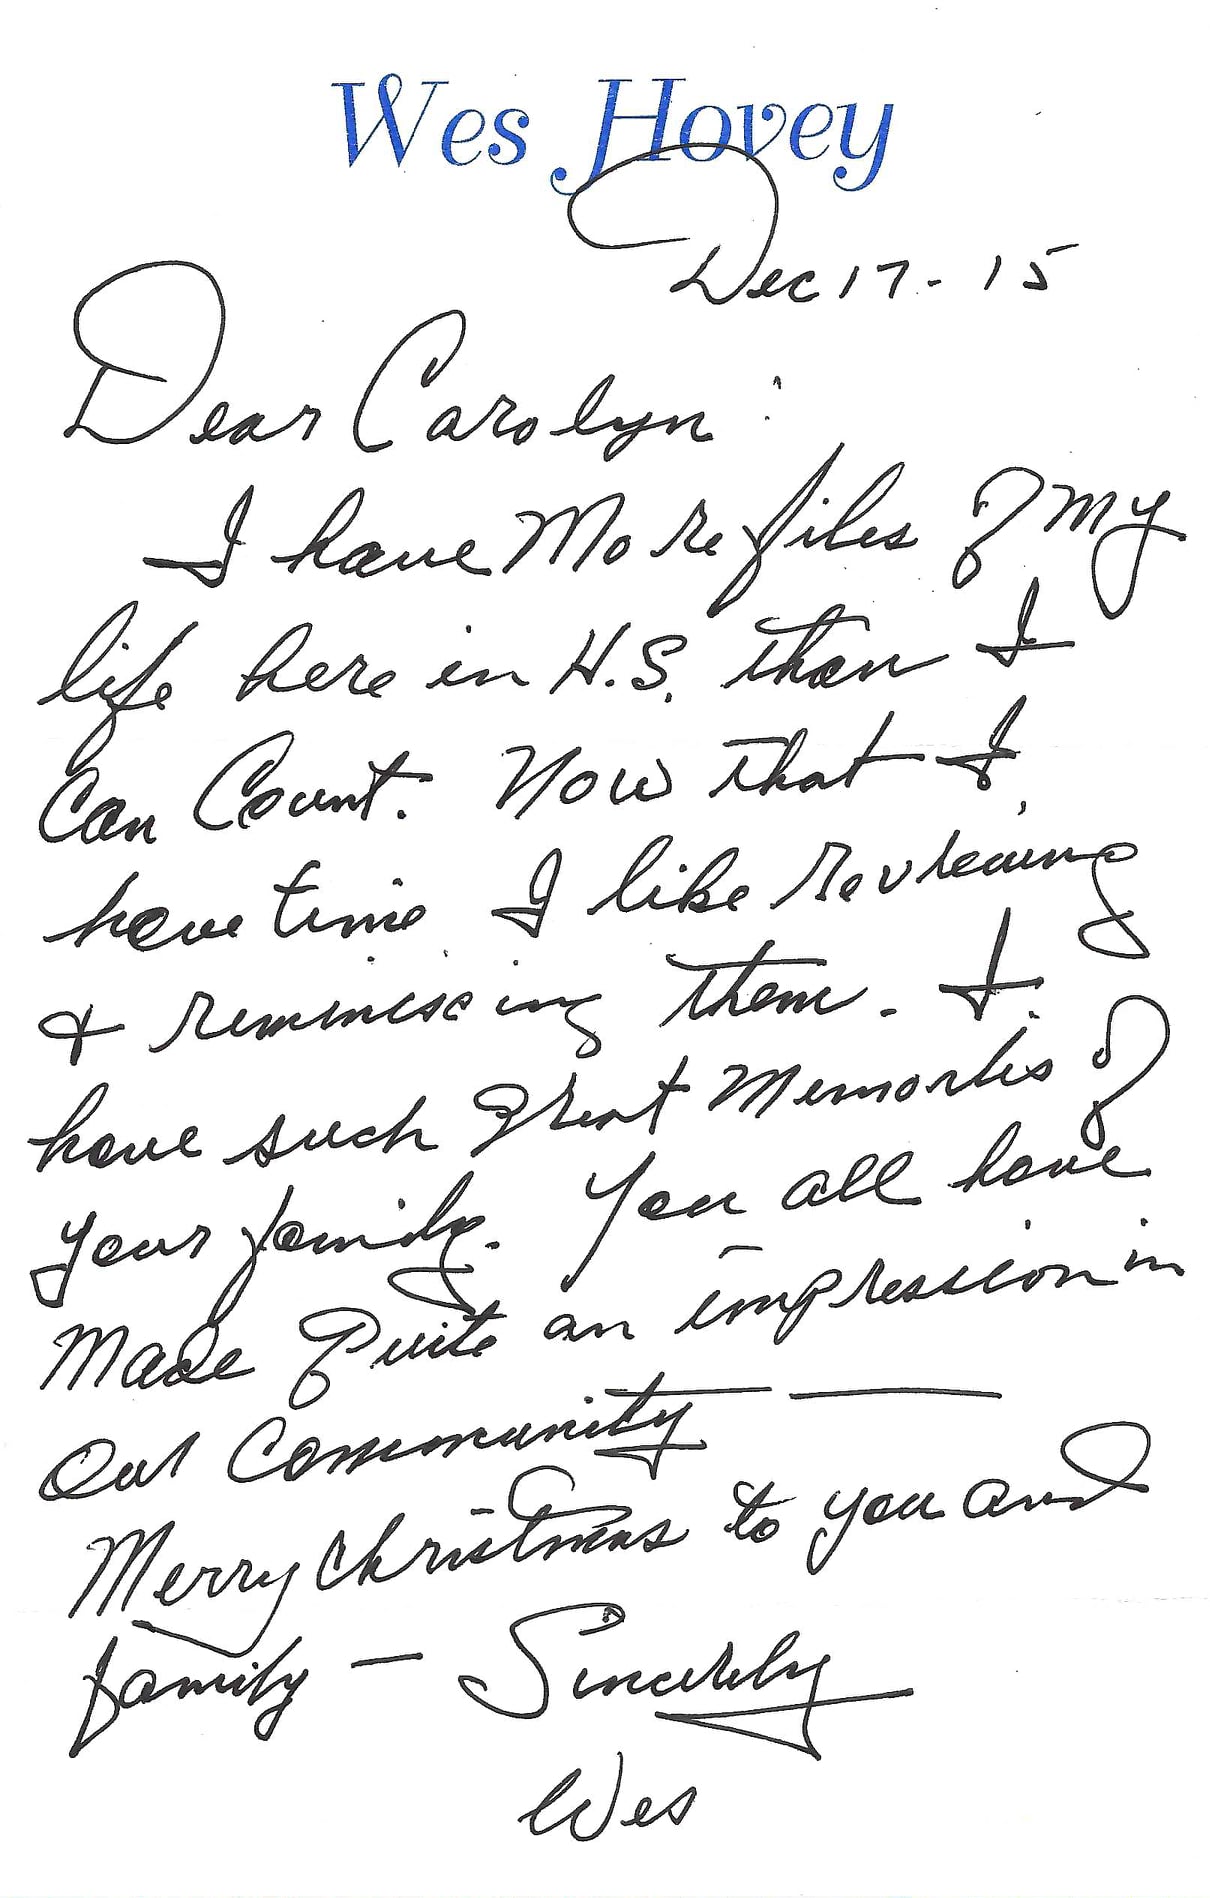 Wes Hovey
Dec 17 - 15
Dear Carolyn:
I have More files of My
life here in H.S. than I
Can Count. Now that I
have time I like reviewing
& reminiscing them. I
have such great Memories of
your family. You all have
Made Quite an impression in
Our Community —
Merry Christmas to you and
family — Sincerely
Wes